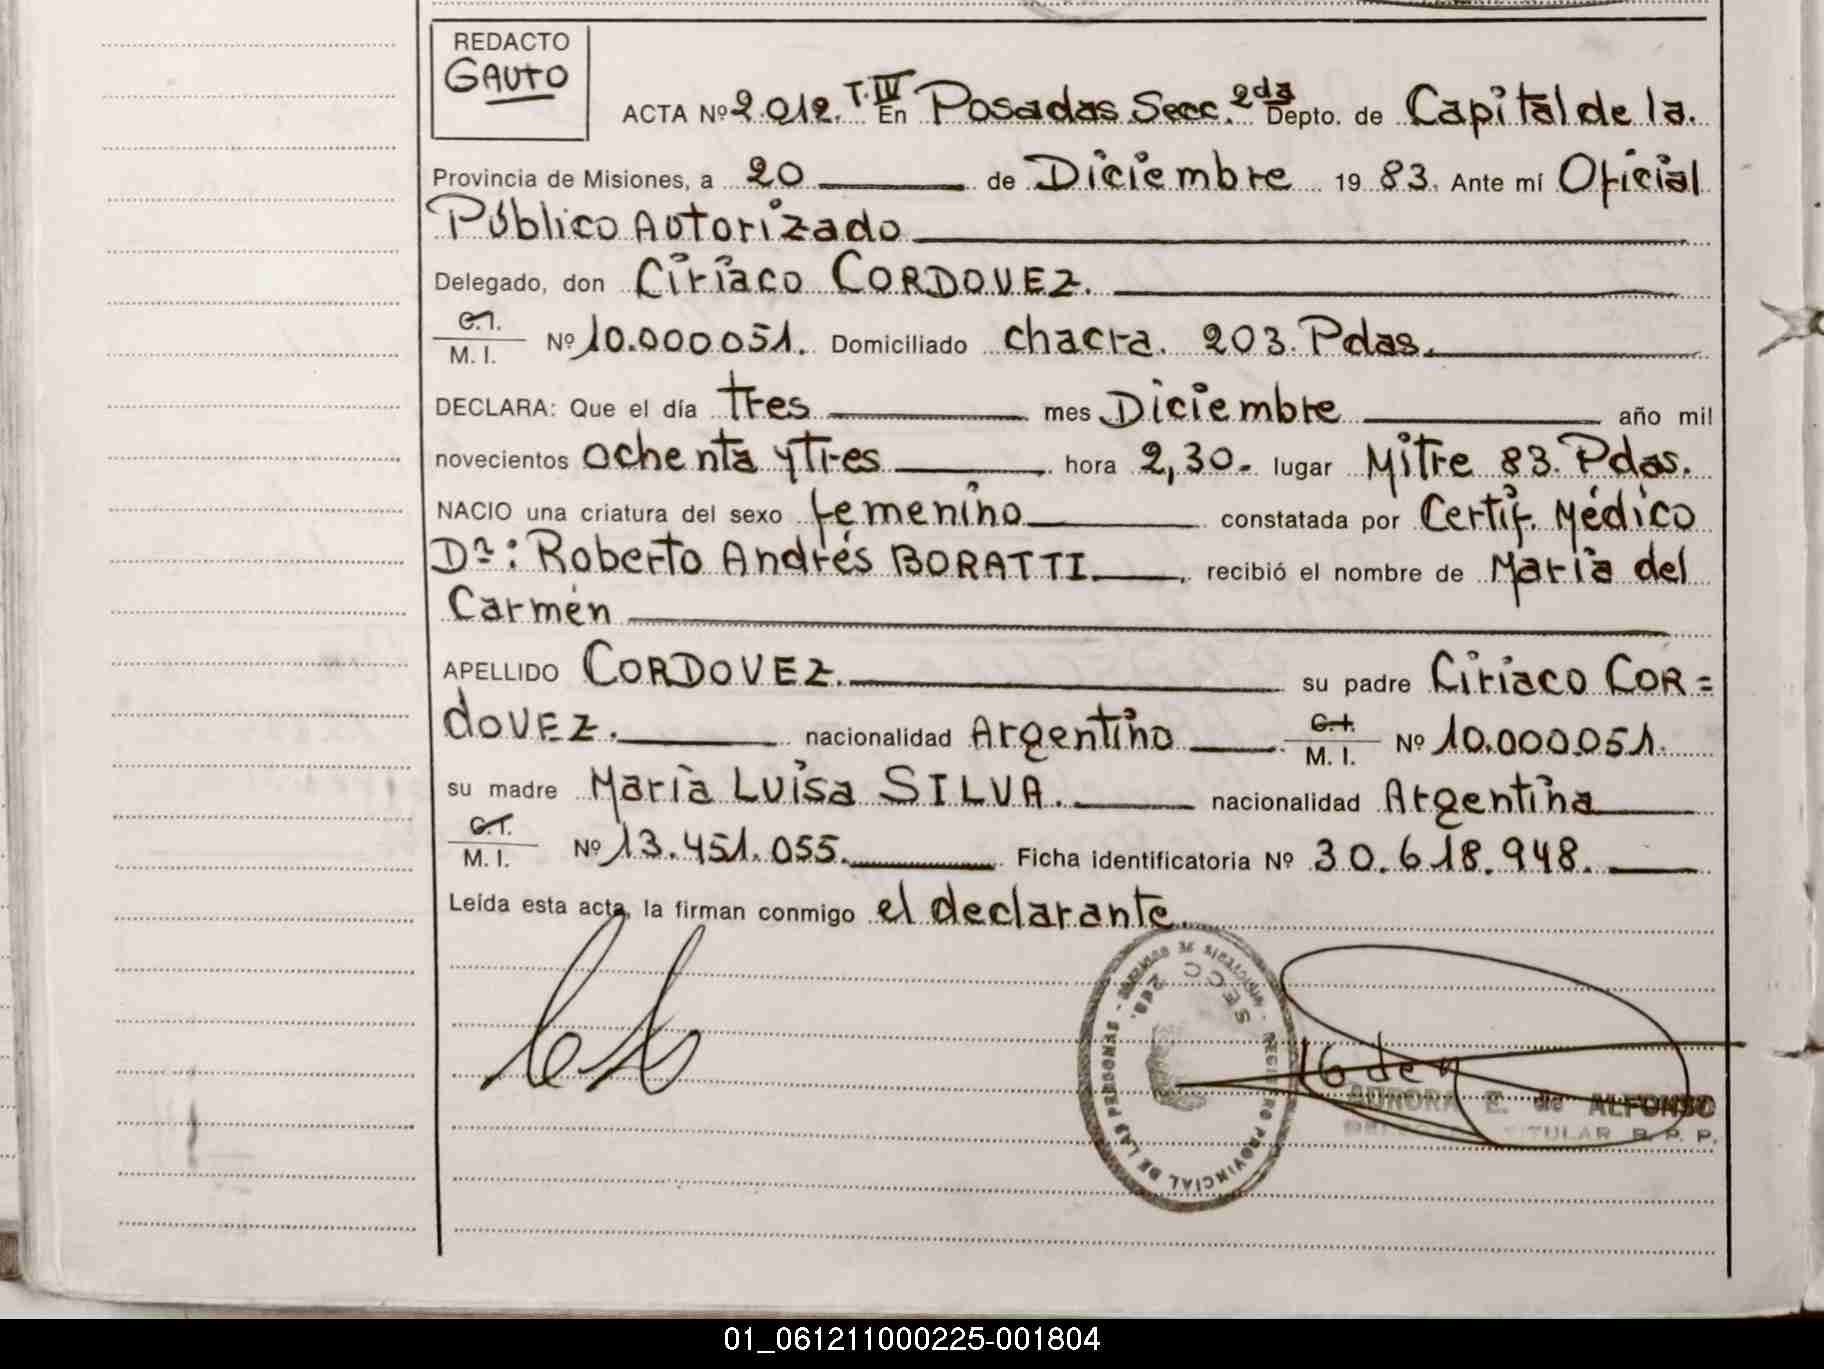 REDACTO
GAUTO
ACTA Nº 2.012. T.IV En Posadas Secc. 2da Depto. de Capital de la
Provincia de Misiones, a 20 de Diciembre 19 83. Ante mí Oficial
Público Autorizado
Delegado, don Ciriaco CORDOVEZ.
C.I.
M. I. Nº 10.000051. Domiciliado chacra. 203. Pdas.
DECLARA: Que el día tres mes Diciembre año mil
novecientos ochenta y tres hora 2,30.- lugar Mitre 83. Pdas.
NACIO una criatura del sexo femenino constatada por Certif. Médico
Dr.: Roberto Andrés BORATTI. recibió el nombre de María del
Carmén
APELLIDO CORDOVEZ. su padre Ciriaco COR=
dOVEZ. nacionalidad Argentino C.I.
M. I. Nº 10.000.051.
su madre María Luisa SILVA. nacionalidad Argentina
C.I.
M. I. Nº 13.451.055. Ficha identificatoria Nº 30.618.948.
Leída esta acta, la firman conmigo el declarante.
SECC 2da.
REGISTRO PROVINCIAL DE LAS PERSONAS
AURORA E. de ALFONSO
TITULAR R. P. P.
01_061211000225-001804